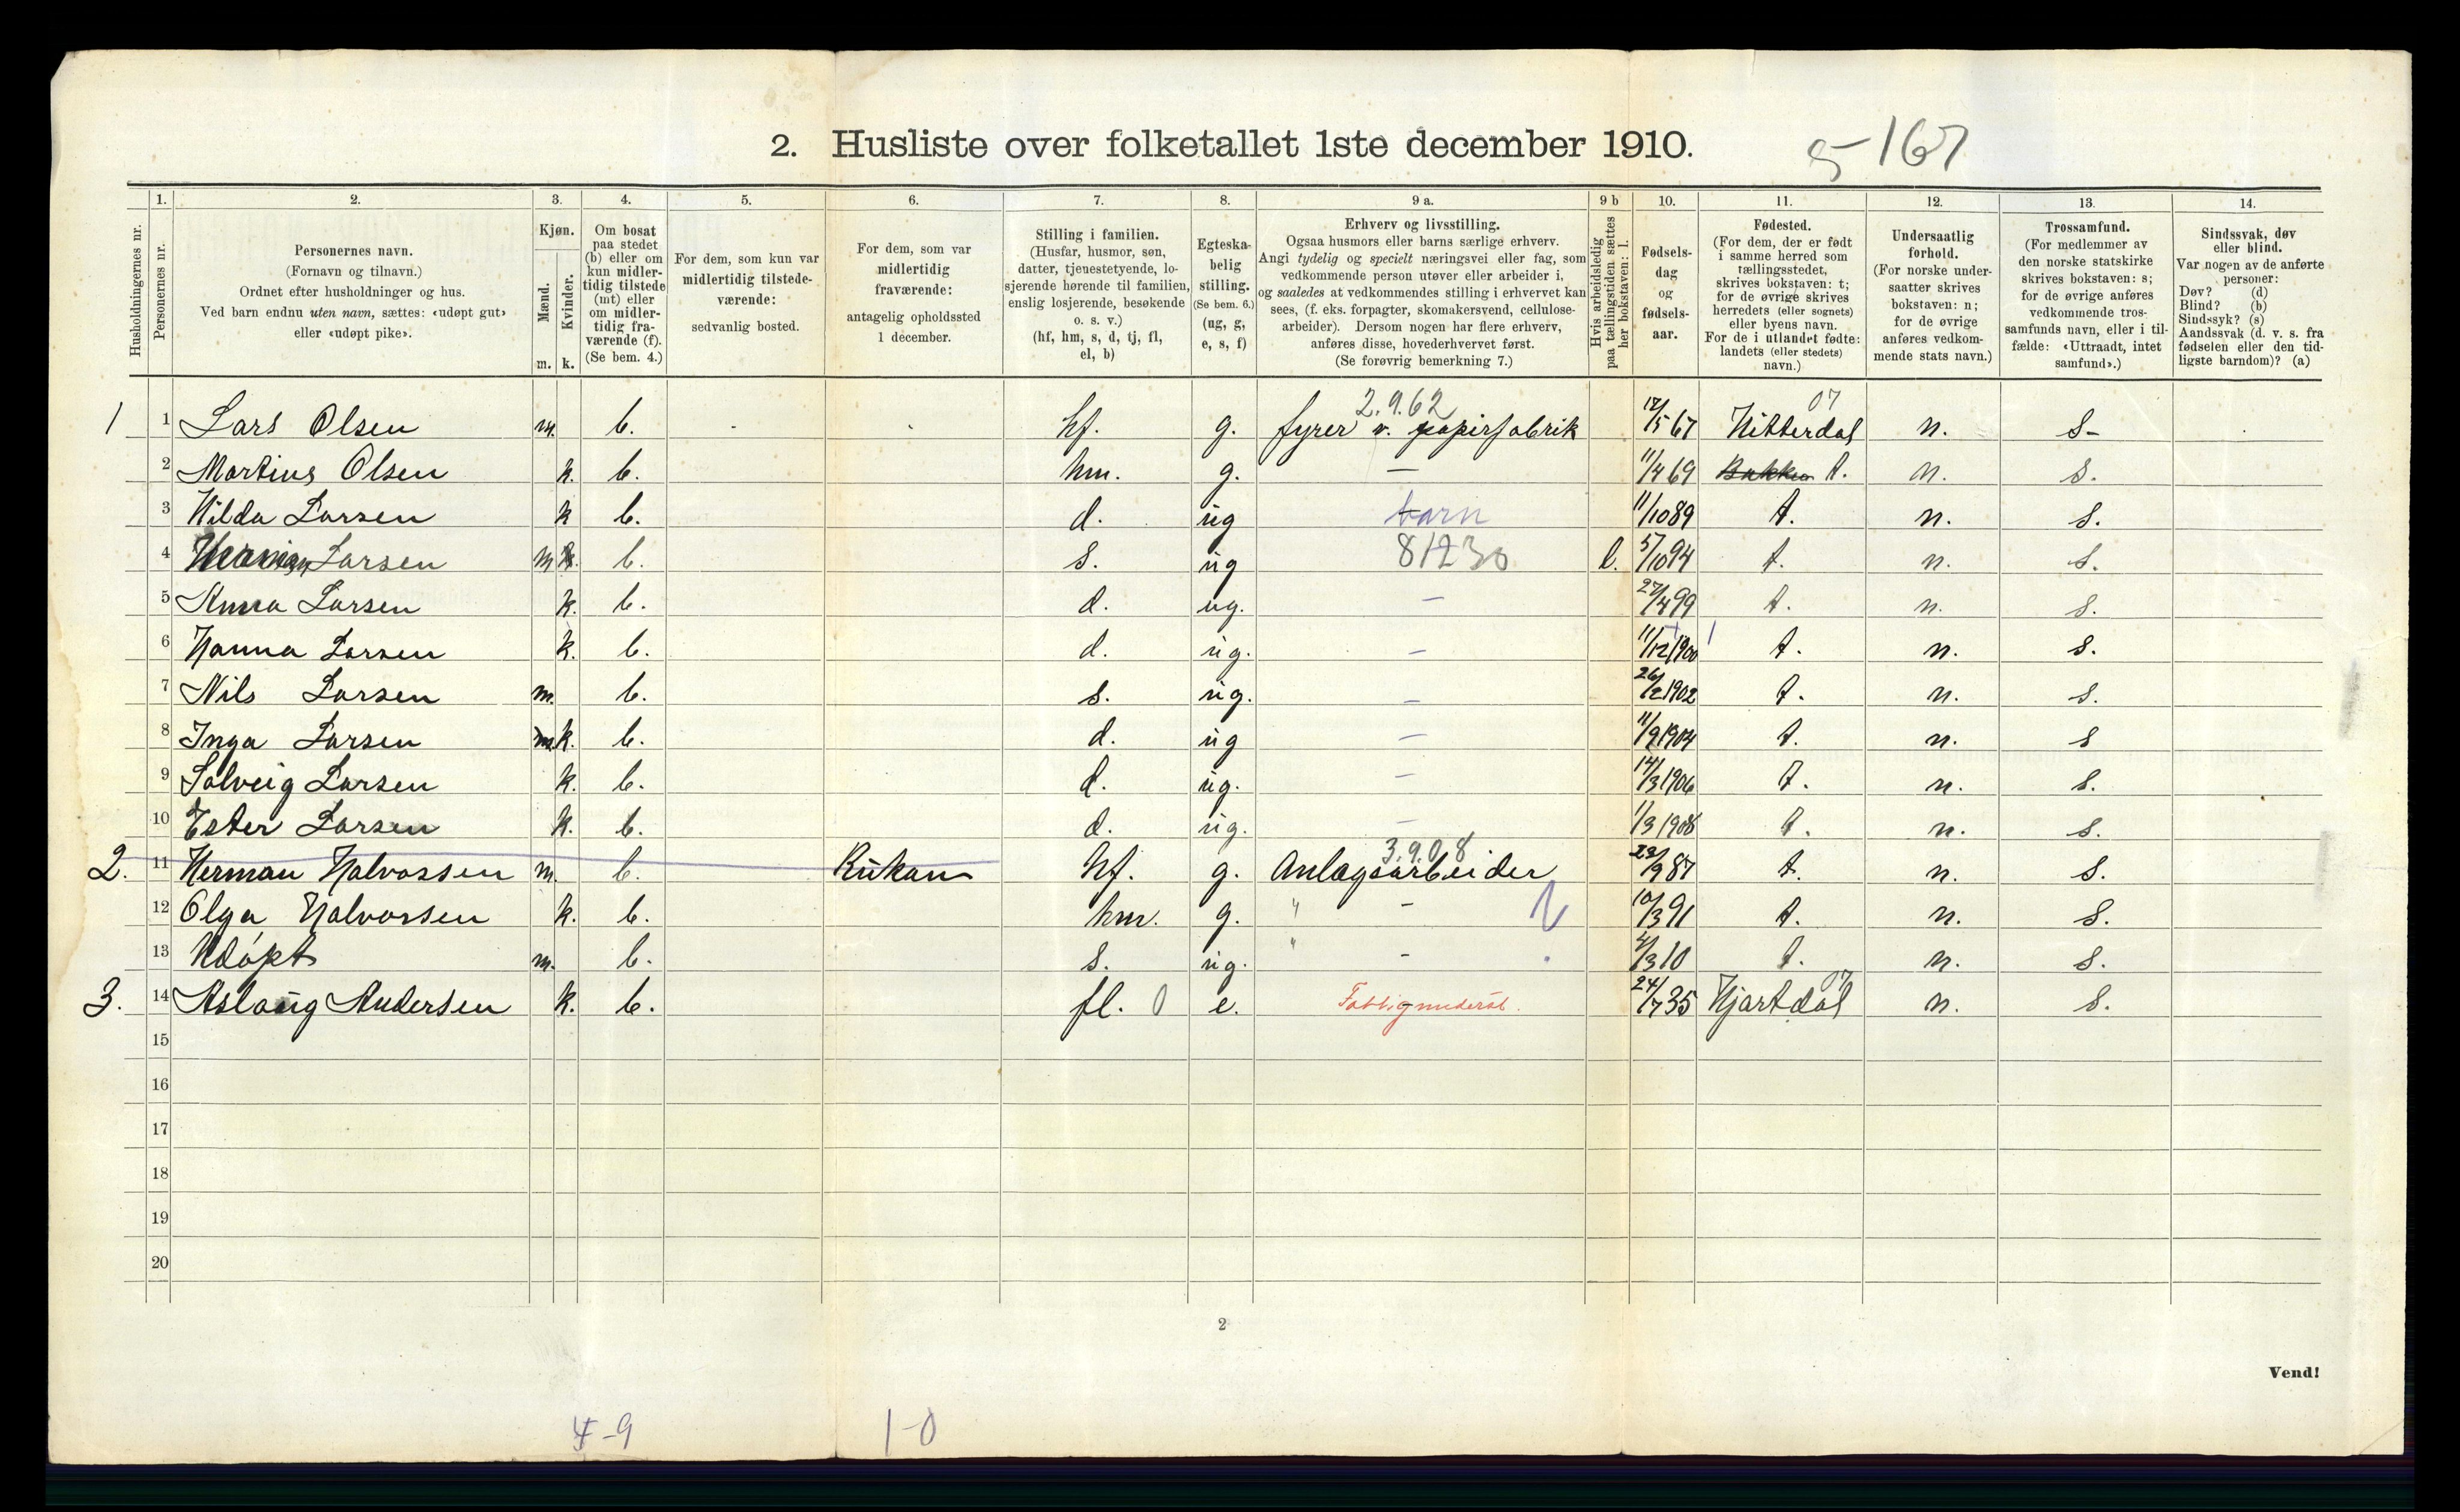 2. Husliste over folketallet 1ste december 1910.
5-167
1. 2. 3. 4. 5. 6. 7. 8. 9 a. 9 b 10. 11. 12. 13. 14.
Husholdningernes nr.
Personernes nr.
Personernes navn.
(Fornavn og tilnavn.)
Ordnet efter husholdninger og hus.
Ved barn endnu uten navn, sættes: «udøpt gut»
eller «udøpt pike».
Kjøn.
Mænd.
Kvinder.
m. k.
Om bosat
paa stedet
(b) eller om
kun midler-
tidig tilstede
(mt) eller
om midler-
tidig fra-
værende (f).
(Se bem. 4.)
For dem, som kun var
midlertidig tilstede-
værende:
sedvanlig bosted.
For dem, som var
midlertidig
fraværende:
antagelig opholdssted
1 december.
Stilling i familien.
(Husfar, husmor, søn,
datter, tjenestetyende, lo-
sjerende hørende til familien,
enslig losjerende, besøkende
o. s. v.)
(hf, hm, s, d, tj, fl,
el, b)
Egteska-
belig
stilling.
(Se bem. 6.)
(ug, g,
e, s, f)
Erhverv og livsstilling.
Ogsaa husmors eller barns særlige erhverv.
Angi tydelig og specielt næringsvei eller fag, som
vedkommende person utøver eller arbeider i,
og saaledes at vedkommendes stilling i erhvervet kan
sees, (f. eks. forpagter, skomakersvend, cellulose-
arbeider). Dersom nogen har flere erhverv,
anføres disse, hovederhvervet først.
(Se forøvrig bemerkning 7.)
Hvis arbeidsledig
paa tællingstiden sættes
her bokstaven: l.
Fødsels-
dag
og
fødsels-
aar.
Fødested.
(For dem, der er født
i samme herred som
tællingsstedet,
skrives bokstaven: t;
for de øvrige skrives
herredets (eller sognets)
eller byens navn.
For de i utlandet fødte:
landets (eller stedets)
navn.)
Undersaatlig
forhold.
(For norske under-
saatter skrives
bokstaven: n;
for de øvrige
anføres vedkom-
mende stats navn.)
Trossamfund.
(For medlemmer av
den norske statskirke
skrives bokstaven: s;
for de øvrige anføres
vedkommende tros-
samfunds navn, eller i til-
fælde: «Uttraadt, intet
samfund».)
Sindssvak, døv
eller blind.
Var nogen av de anførte
personer:
Døv? (d)
Blind? (b)
Sindssyk? (s)
Aandssvak (d. v. s. fra
fødselen eller den tid-
ligste barndom)? (a)
2.9.62 07
1 1 Lars Olsen m. b. hf. g. fyrer v. papirfabrik 12/5 67 Hitterdal n. s-
2 Martius Olsen k. b. hm. g. — 11/4 69 Bakken t. n. s.
3 Hilda Larsen k b. d. ug barn 11/10 89 t. n. s.
4 Larsen m k. b. s. ug 81230 l. 5/10 94 t. n. s.
5 Anna Larsen k. b. d. ug. — 27/4 99 t. n. s.
6 Hanna Larsen k. b. d. ug. — 11/12 1900 1 t. n. s.
7 Nils Larsen m. b. s. ug. — 26/2 1902 t. n. s.
8 Inga Larsen m. k. b. d. ug — 11/9 1904 t. n. s
9 Solveig Larsen k. b. d. ug. — 14/3 1906 t. n. s.
10 Ester Larsen k. b. d. ug. — 1/3 1908 t. n. s.
3.9.08
2. 11 Herman Halvorsen m. b. Rukan hf. g. Anlægsarbeider 23/9 87 t. n. s.
12 Olga Halvorsen k. b. hm. g. " - 10/3 91 t. n. s.
13 Udøpt m. b. s. ug. " - 4/3 10 t. n. s.
07
3. 14 Aslaug Andersen k. b. fl. 0 e. Fattigunderst. 24/7 35 Hjartdal n. s.
15
16
17
18
19
20
2
Vend!
4-9 1-0